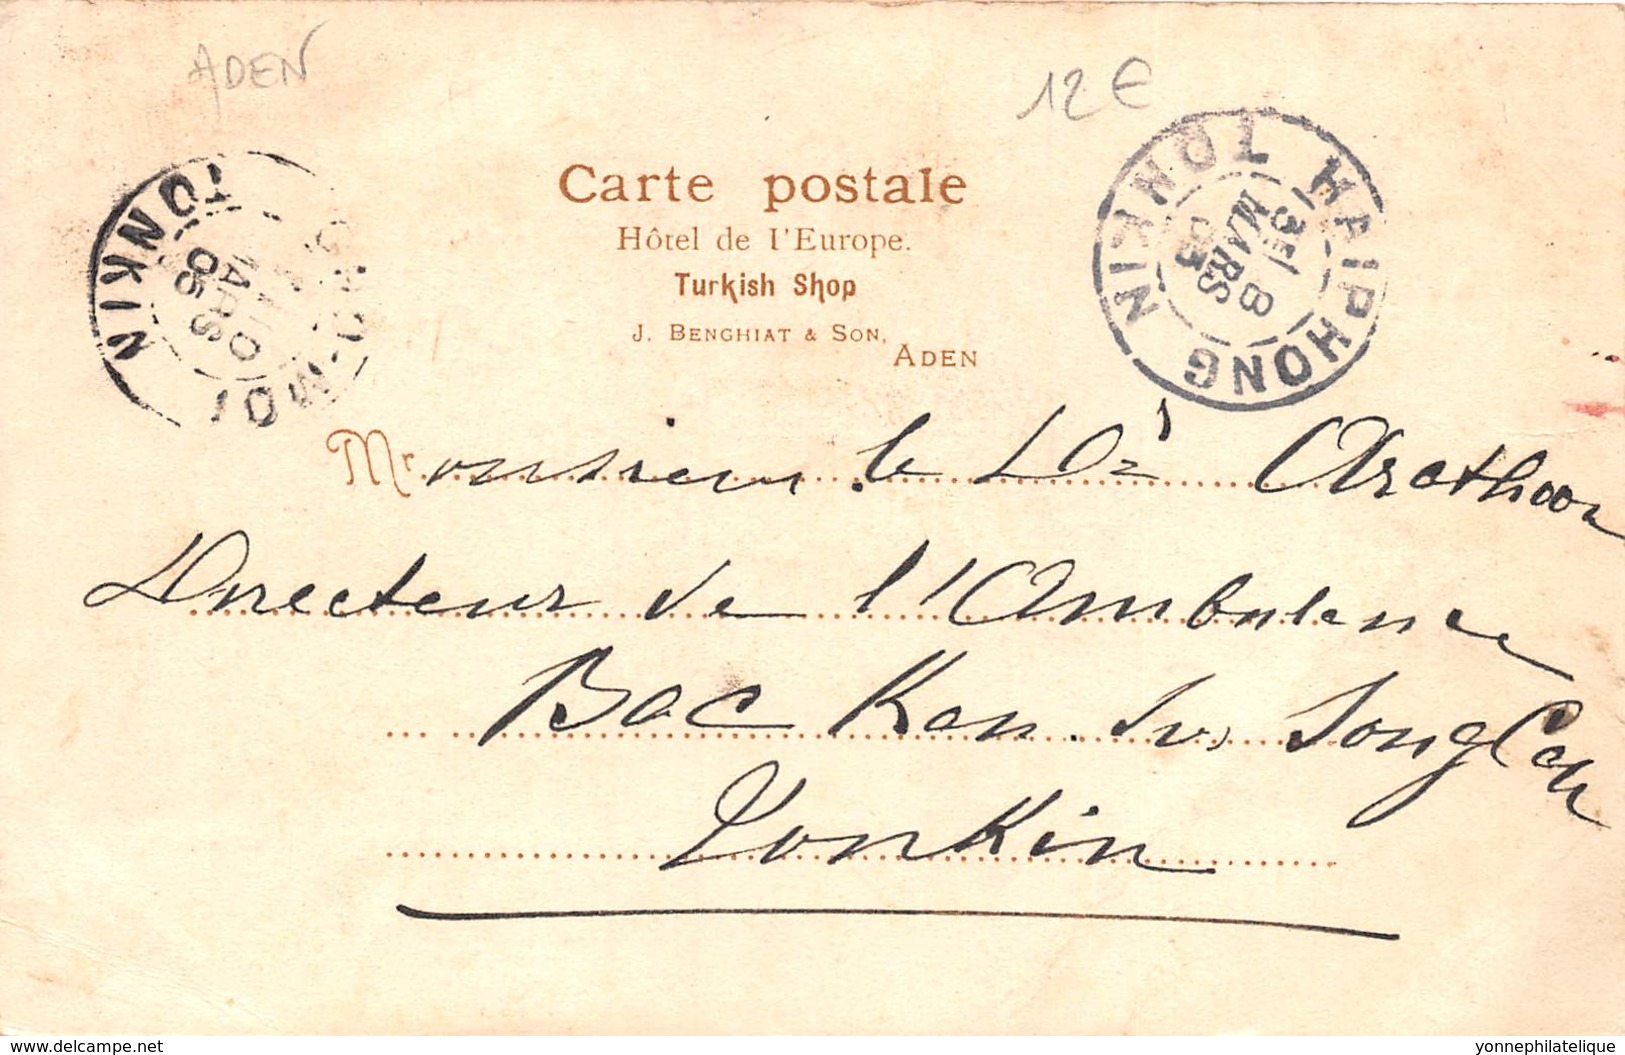 ADEN
12 €
Carte postale
Hôtel de l'Europe.
Turkish Shop
J. BENGHIAT & SON,
ADEN
HAIPHONG
TONKIN
3E
8
MARS
05
TONKIN
MARS
05
Monsieur le Dr Arathoon
Directeur de l'Ambulance
Bac Kan. Sv. Song Cau
Tonkin
www.delcampe.net
yonnephilatelique